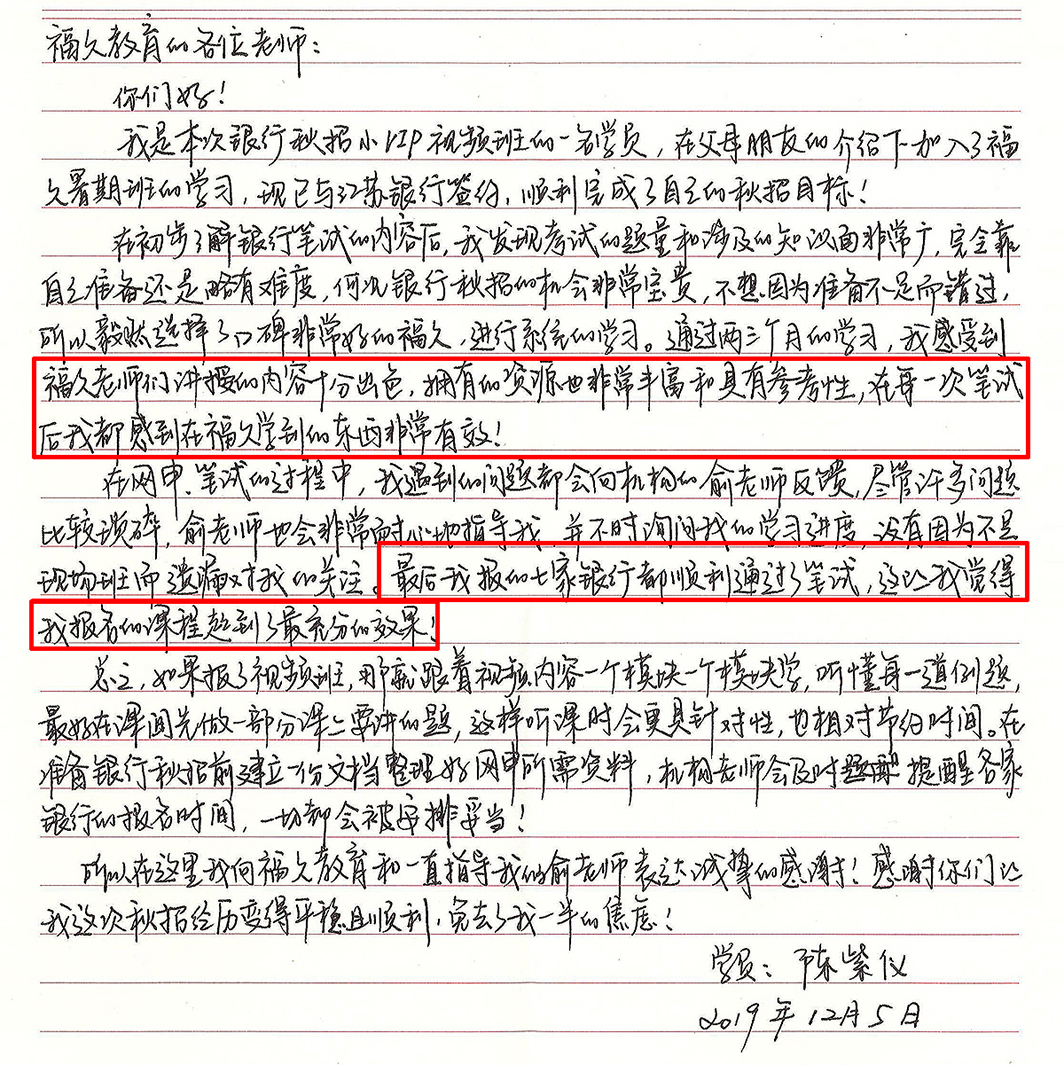 福久教育的各位老师：
你们好！
我是本次银行秋招小VIP视频班的一名学员，在父母朋友的介绍下加入了福
久暑期班的学习，现已与江苏银行签约，顺利完成了自己的秋招目标！
在初步了解银行笔试的内容后，我发现考试的题量和涉及的知识面非常广，完全靠
自己准备还是略有难度，何况银行秋招的机会非常宝贵，不想因为准备不足而错过，
所以毅然选择了口碑非常好的福久，进行系统的学习。通过两三个月的学习，我感受到
福久老师们讲授的内容十分出色，拥有的资源也非常丰富和具有参考性，在每一次笔试
后我都感到在福久学到的东西非常有效！
在网申、笔试的过程中，我遇到的问题都会向机构的俞老师反馈，尽管许多问题
比较琐碎，俞老师也会非常耐心地指导我，并不时询问我的学习进度，没有因为不是
现场班而遗漏对我的关注。最后我报的七家银行都顺利通过了笔试，这让我觉得
我报名的课程起到了最充分的效果！
总之，如果报了视频班，那就跟着视频内容一个模块一个模块学，听懂每一道例题，
最好在课间先做一部分课上要讲的题，这样听课时会更具针对性，也相对节约时间。在
准备银行秋招前建立一份文档整理好网申所需资料，机构老师会及时提醒各家
银行的报名时间，一切都会被安排妥当！
所以在这里我向福久教育和一直指导我的俞老师表达诚挚的感谢！感谢你们让
我这次秋招经历变得平稳且顺利，免去了我一半的焦虑！
学员：陈紫仪
2019年12月5日